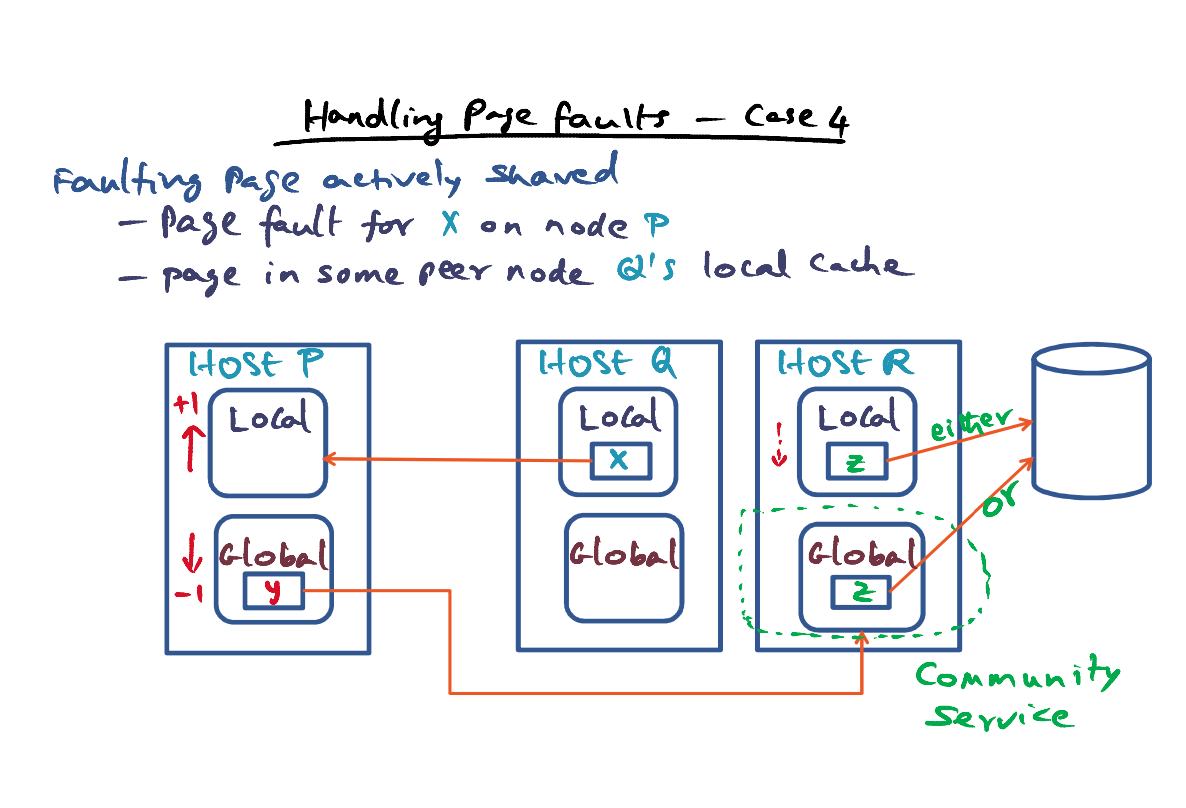 Handling Page faults — Case 4
Faulting Page actively shared
— Page fault for X on node P
— page in some peer node Q's local cache
HOST P
+1
Local
-1
Global
y
HOST Q
Local
X
Global
HOST R
Local
z
either
Global
z
or
Community
Service